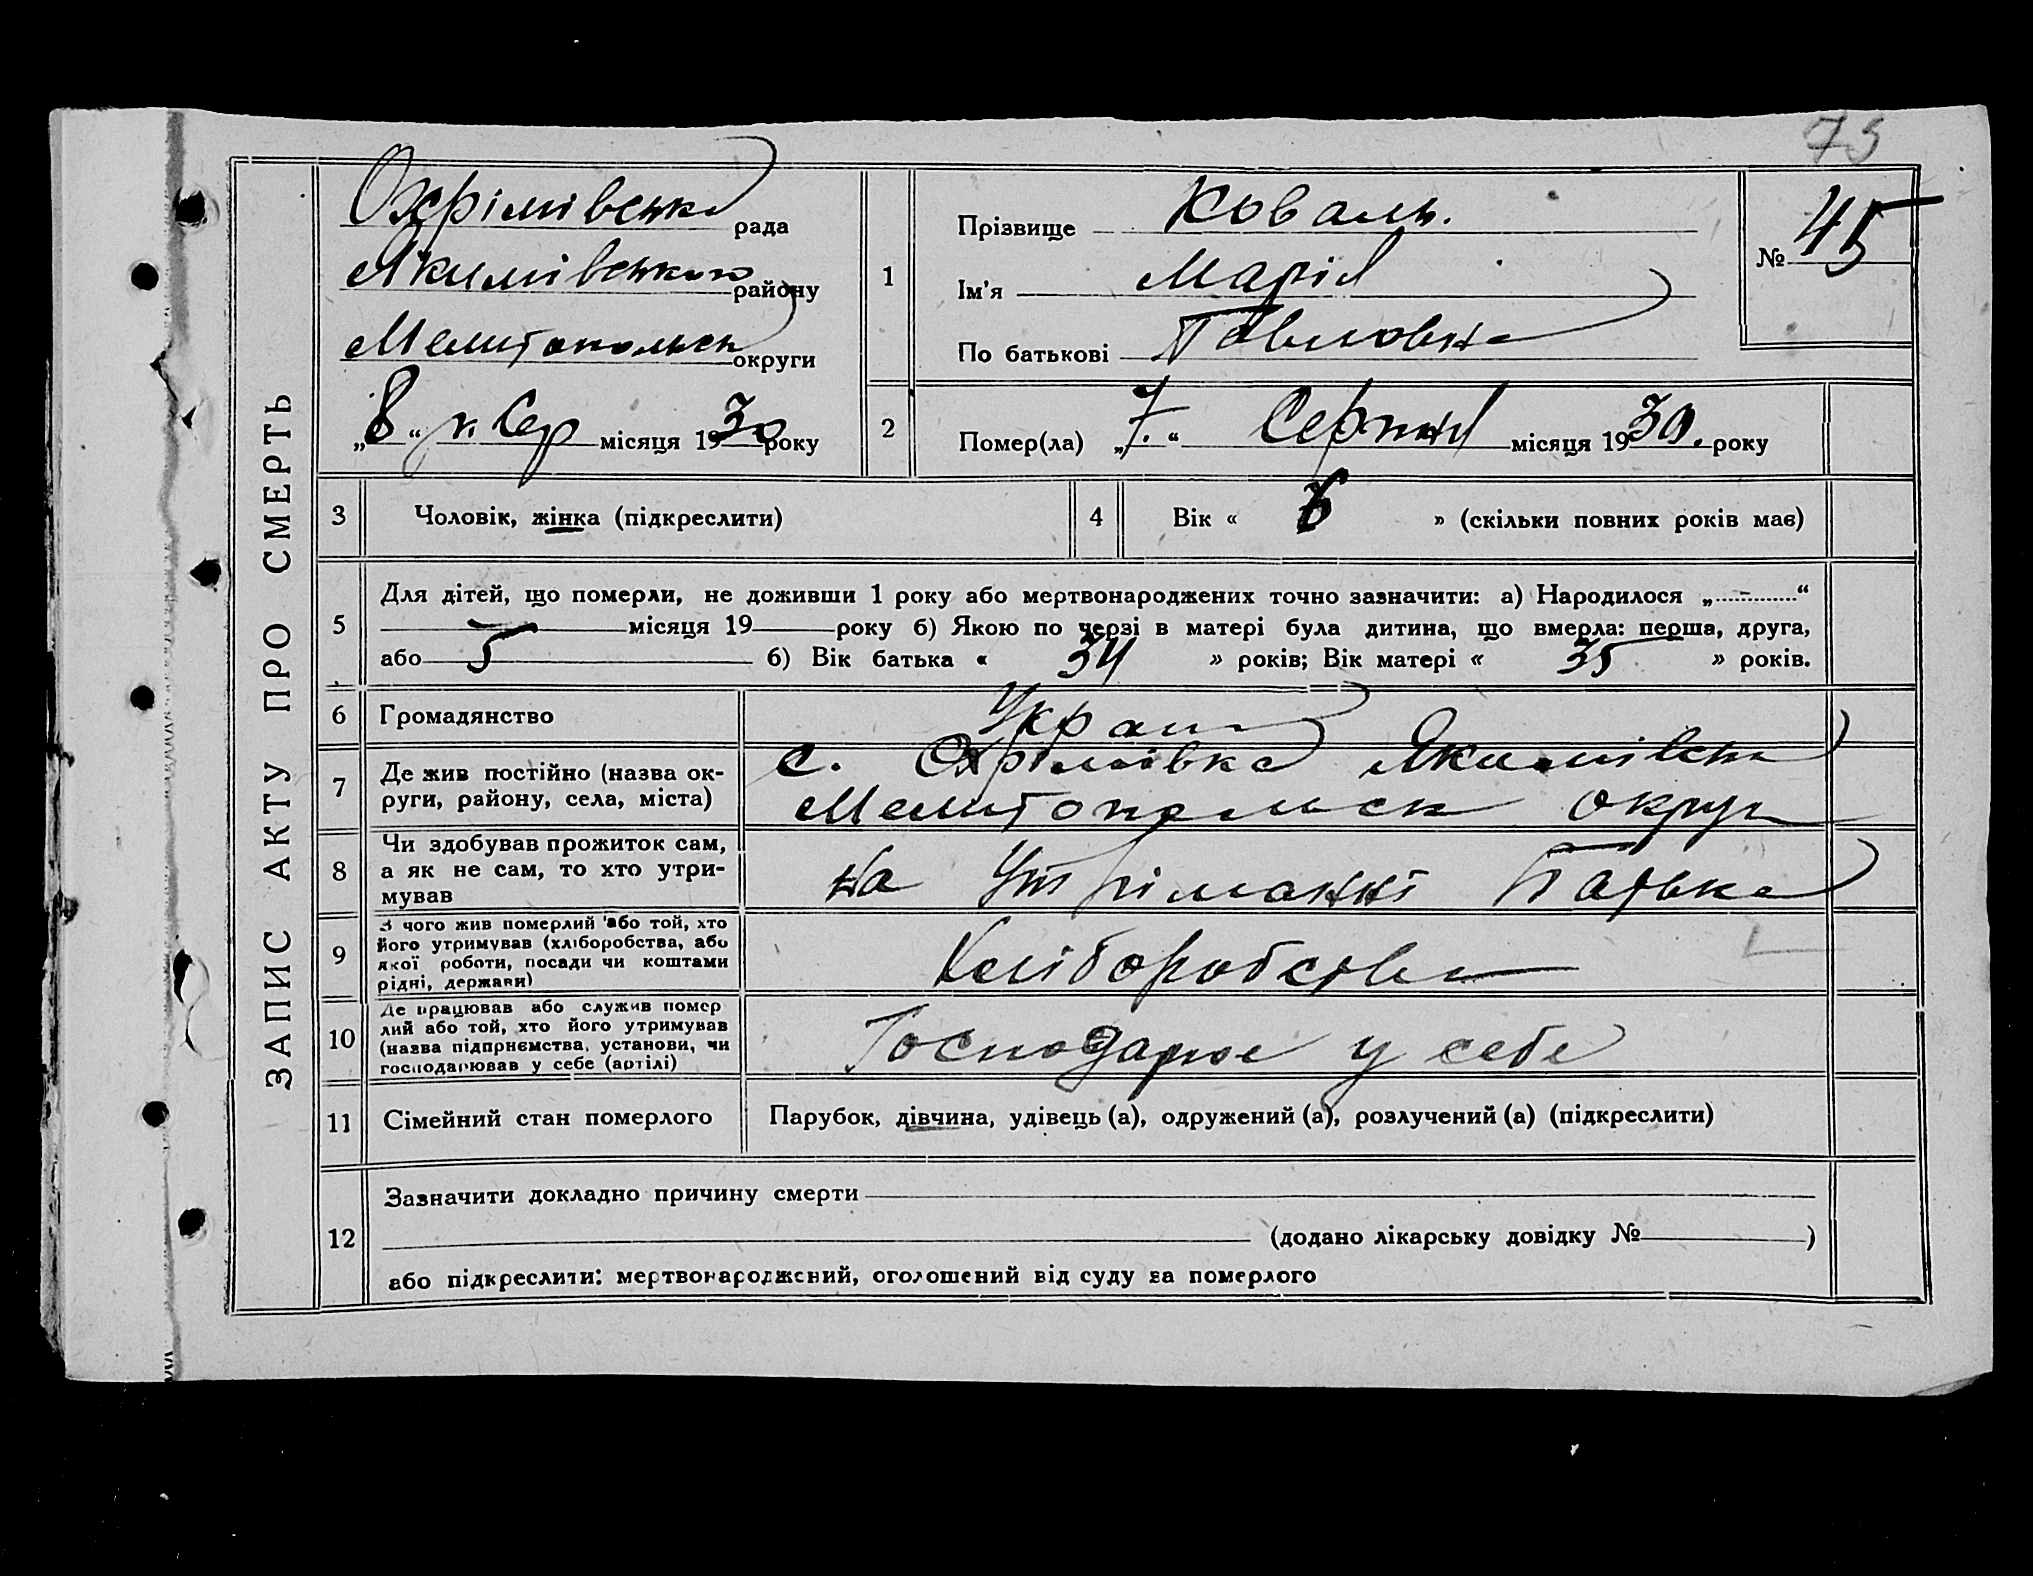 73
ЗАПИС АКТУ ПРО СМЕРТЬ
Охрімівська рада
Якимівського району
Мелитопольск округи
„8“ Сер місяця 1930 року
1
Прізвище Коваль.
Ім'я Марія
По батькові Павловна
№ 45
2
Помер(ла) „7.“ Серпня місяця 1930. року
3
Чоловік, жінка (підкреслити)
4
Вік « » (скільки повних років має)
5
Для дітей, що померли, не доживши 1 року або мертвонароджених точно зазначити: а) Народилося „-“
місяця 19 року б) Якою по черзі в матері була дитина, що вмерла: перша, друга,
або 5 б) Вік батька « 34 » років; Вік матері « 35 » років.
6
Громадянство
Украи
7
Де жив постійно (назва ок-
руги, району, села, міста)
с. Охрімівка Якимівськ
Мелитопольск округи
8
Чи здобував прожиток сам,
а як не сам, то хто утри-
мував
на Утріманні Батька
9
З чого жив померлий або той, хто
його утримував (хліборобства, або
якої роботи, посади чи коштами
рідні, держави)
Хліборобства
10
Де працював або служив помер
лий або той, хто його утримував
(назва підприємства, установи, чи
господарював у себе (артілі)
Господарює у себе
11
Сімейний стан померлого
Парубок, дівчина, удівець (а), одружений (а), розлучений (а) (підкреслити)
12
Зазначити докладно причину смерти
(додано лікарську довідку № )
або підкреслити: мертвонароджений, оголошений від суду за померлого